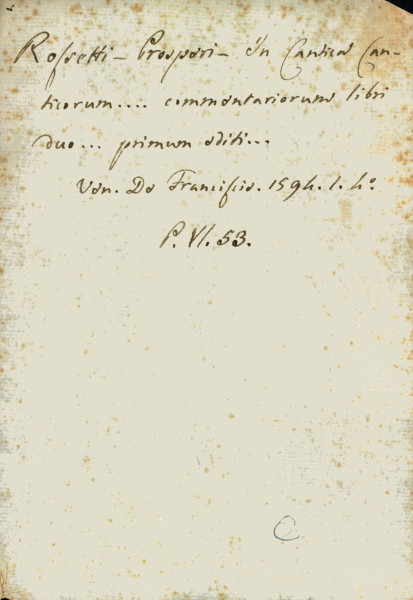 Rossetti - Prosperi - In Cantica Can-
ticorum.... commentariorum libri
duo... primum editi...
Ven. De Franciscis. 1594. 1. 4º.
P. VI. 53.